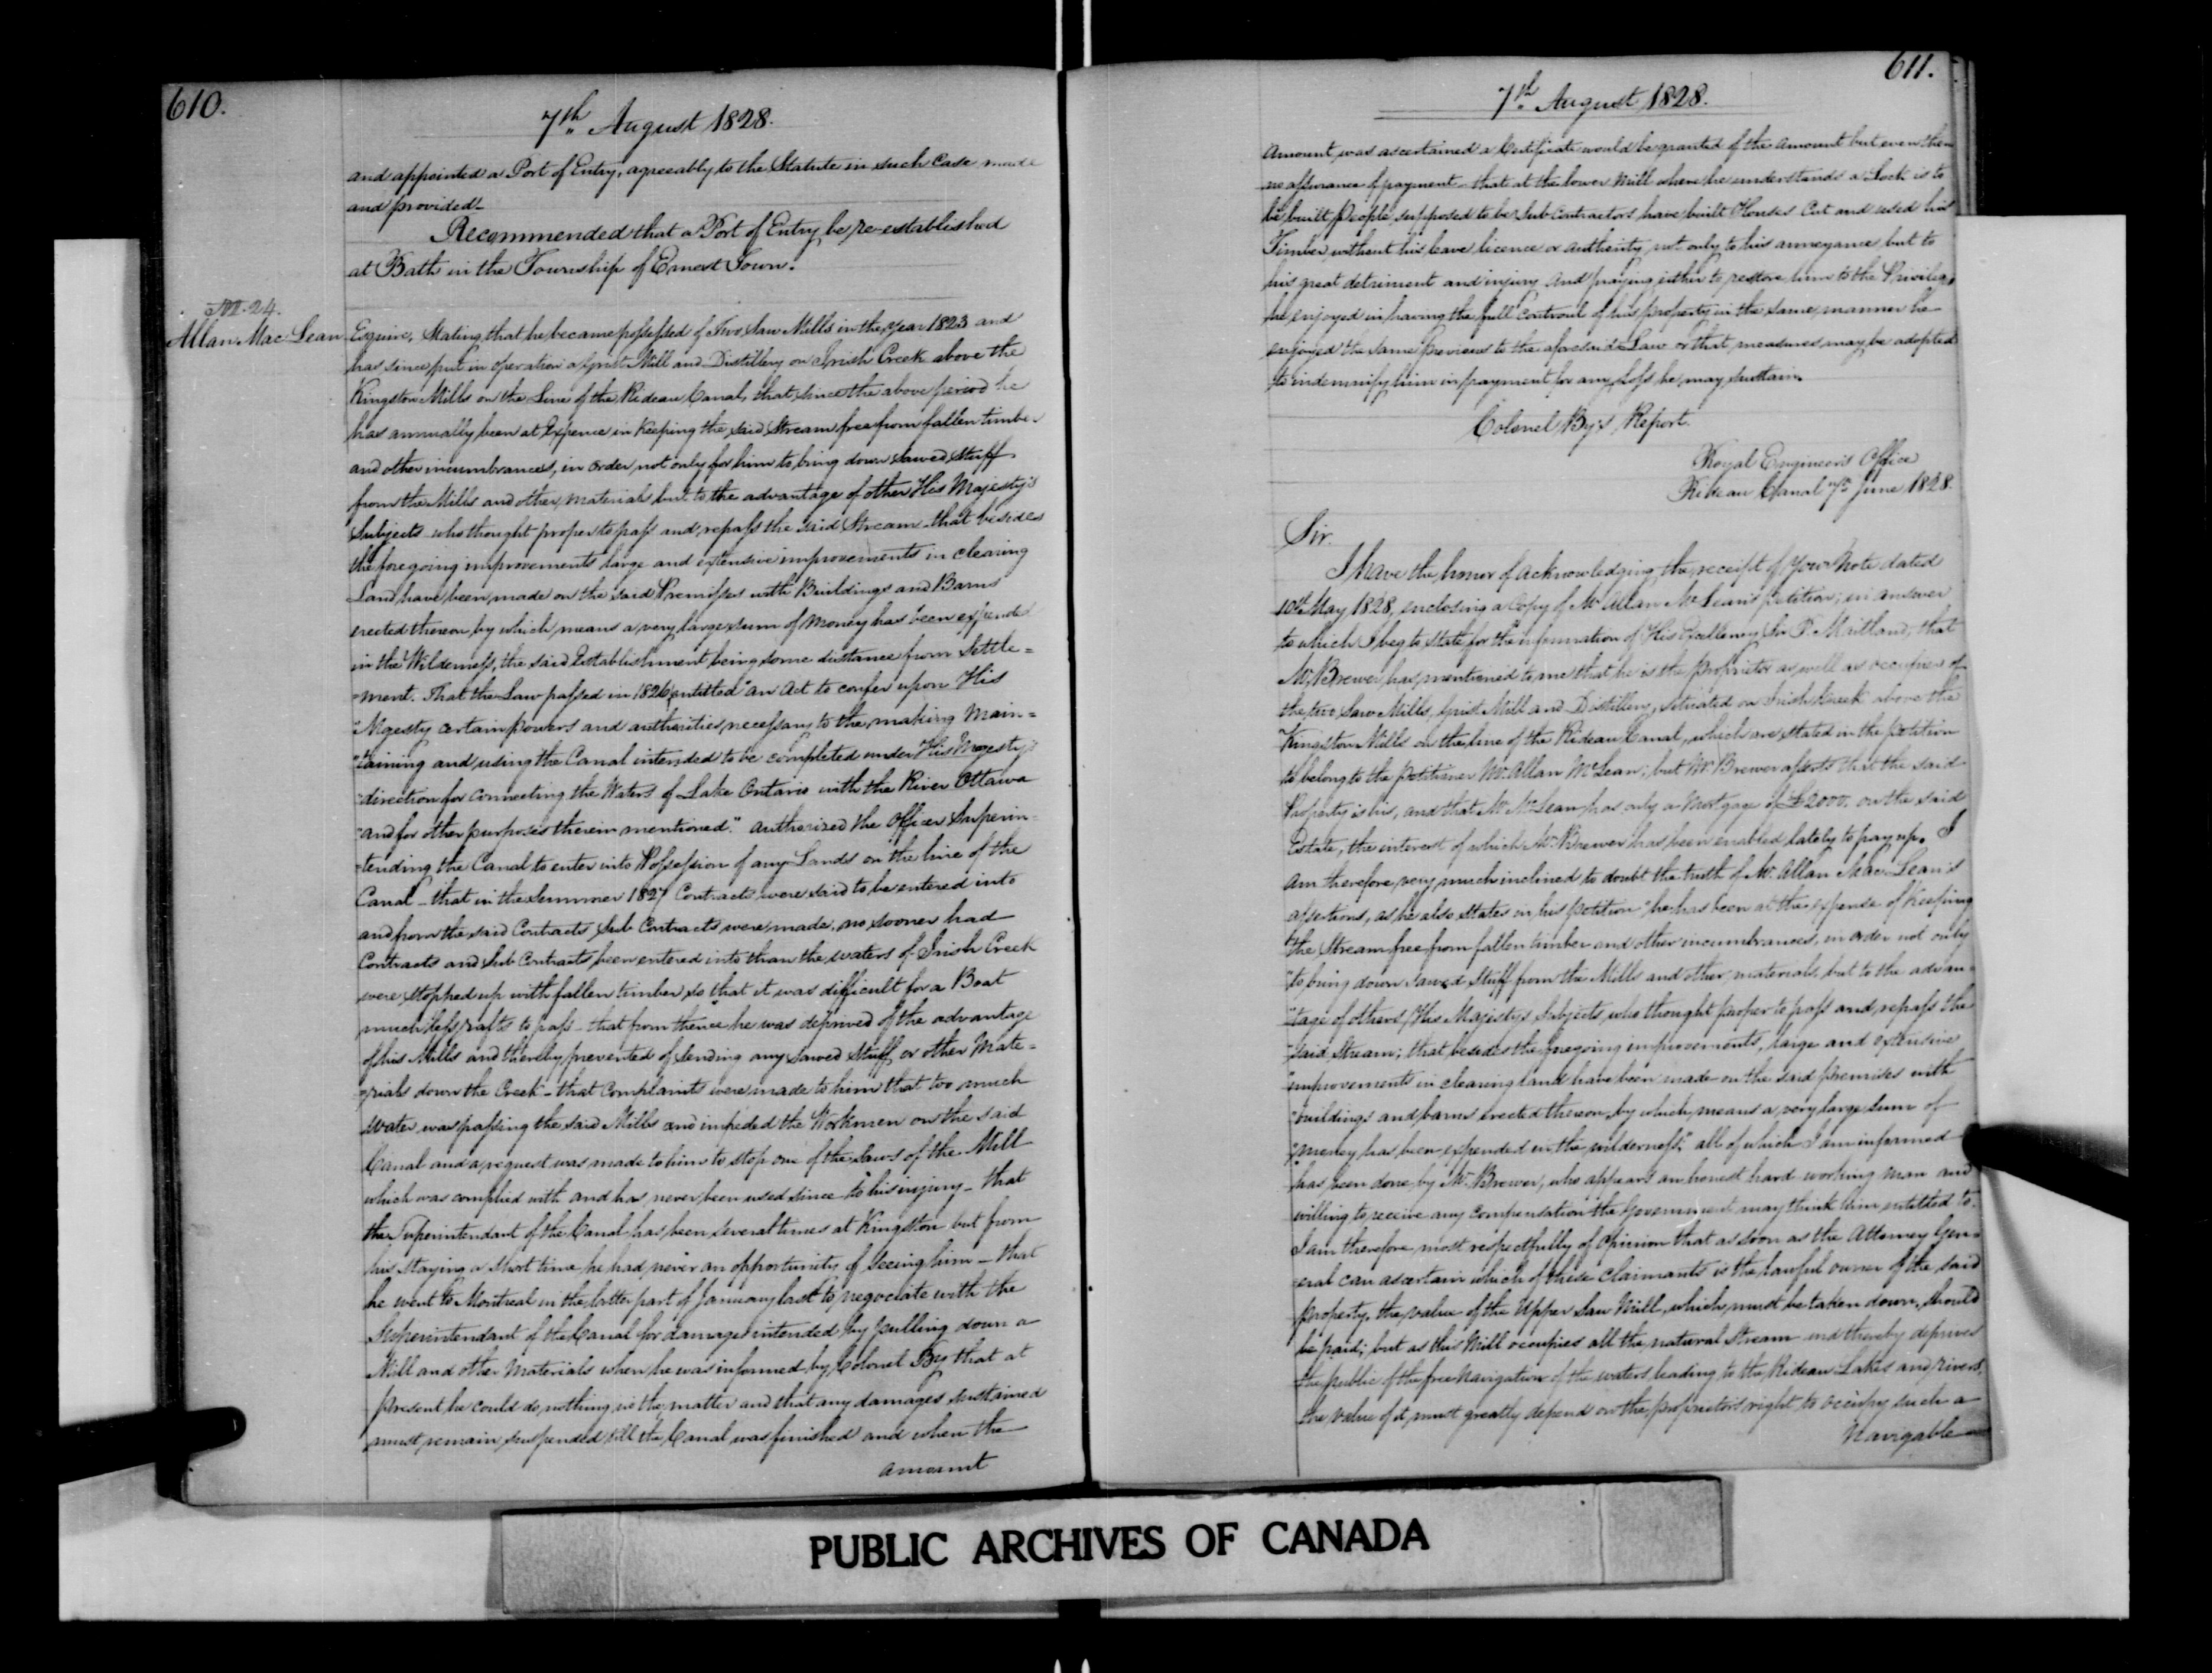 610.
7th August 1828.
and appointed a Port of Entry, agreeably to the Statute in such Case made
and provided-
Recommended that a Port of Entry be re-established
at Bath in the Township of Ernest Town.
No. 24.
Allan Mac Lean Esquire, Stating that he became possessed of Two Saw Mills in the year 1823 and
has since put in operation a Grist Mill and Distillery on Irish Creek above the
Kingston Mills on the Line of the Rideau Canal, that since the above period he
has annually been at Expence in Keeping the said Stream free from fallen timber
and other incumbrances, in order not only for him to bring down sawed Stuff
from the Mills and other materials but to the advantage of other His Majesty's
Subjects who thought proper to pass and repass the said Stream - that besides
the foregoing improvements large and extensive improvements in clearing
Land have been made on the said Premisses with Buildings and Barns
erected thereon by which means a very large sum of Money has been expended
in the Wilderness, the said Establishment being some distance from Settle=
=ment. That the Law passed in 1826 entitled "an Act to confer upon His
"Majesty certain powers and authorities necessary to the making Main=
"taining and using the Canal intended to be completed under His Majesty's
"direction for Connecting the Waters of Lake Ontario with the River Ottawa
"and for other purposes therein mentioned." authorized the Officer Superin=
=tending the Canal to enter into Possession of any Lands on the line of the
Canal - that in the Summer 1827 Contracts were said to be entered into
and from the said Contracts Sub Contracts were made, no sooner had
Contracts and Sub Contracts been entered into than the waters of Irish Creek
were stopped up with fallen timber so that it was difficult for a Boat
much less rafts to pass - that from thence he was deprived of the advantage
of his Mills and thereby prevented of sending any sawed Stuff or other Mate=
=rials down the Creek - that Complaints were made to him that too much
water was passing the said Mills and impeded the Workmen on the said
Canal and a request was made to him to stop one of the Saws of the Mill
which was complied with and has never been used since to his injury - that
the Superintendant of the Canal has been several times at Kingston but from
his staying a short time he had never an opportunity of seeing him - that
he went to Montreal in the latter part of January last to negociate with the
Superintendant of the Canal for damages intended by pulling down a
Mill and other Materials when he was informed by Colonel By that at
present he could do nothing in the matter and that any damages sustained
must remain suspended till the Canal was finished and when the
amount
611.
7th August 1828.
Amount was ascertained a Certificate would be granted of the Amount but even then
no assurance of payment - that at the lower Mill where he understands a Lock is to
be built People supposed to be Sub Contractors have built Houses Cut and used his
Timber without his leave licence or authority not only to his annoyance but to
his great detriment and injury and praying either to restore him to the Privilege
he enjoyed in having the full Controul of his property in the same manner he
enjoyed the same previous to the aforesaid Law or that measures may be adopted
to indemnify him in payment for any Loss he may sustain.
Colonel By's Report.
Royal Engineers Office
Rideau Canal 7th June 1828.
Sir.
I have the honor of acknowledging the receipt of Your Note dated
10th May 1828, enclosing a Copy of Mr Allan McLean's petition; in answer
to which I beg to state for the information of His Excellency Sir P. Maitland, that
Mr Brewer has mentioned to me that he is the proprietor as well as occupier of
the two Saw Mills, Grist Mill and Distillery, situated on Irish Creek above the
Kingston Mills on the line of the Rideau Canal, which are stated in the petition
to belong to the petitioner Mr. Allan McLean; but Mr Brewer asserts that the said
Property is his, and that Mr McLean has only a Mortgage of £2000. on the said
Estate, the interest of which Mr Brewer has been enabled lately to pay up. I
am therefore very much inclined to doubt the truth of Mr. Allan Mac Lean's
assertions, as he also states in his petition "he has been at the expense of keeping
"the Stream free from fallen timber and other incumbrances, in order not only
"to bring down sawed Stuff from the Mills and other materials, but to the advan=
"tage of others His Majesty's Subjects, who thought proper to pass and repass the
"said Stream; that besides the foregoing improvements, large and extensive
"improvements in clearing land have been made on the said premises with
"buildings and barns erected thereon, by which means a very large sum of
"money has been expended in the wilderness," all of which I am informed
has been done by Mr. Brewer, who appears an honest hard working man and
willing to receive any Compensation the Government may think him entitled to.
I am therefore most respectfully of Opinion that as soon as the Attorney Gen=
=eral can ascertain which of these claimants is the lawful owner of the said
property, the value of the Upper Saw Mill, which must be taken down, should
be paid; but as this Mill occupies all the natural Stream and thereby deprives
the public of the free Navigation of the waters leading to the Rideau Lakes and rivers,
the value of it must greatly depend on the proprietors right to occupy such a
Navigable
PUBLIC ARCHIVES OF CANADA